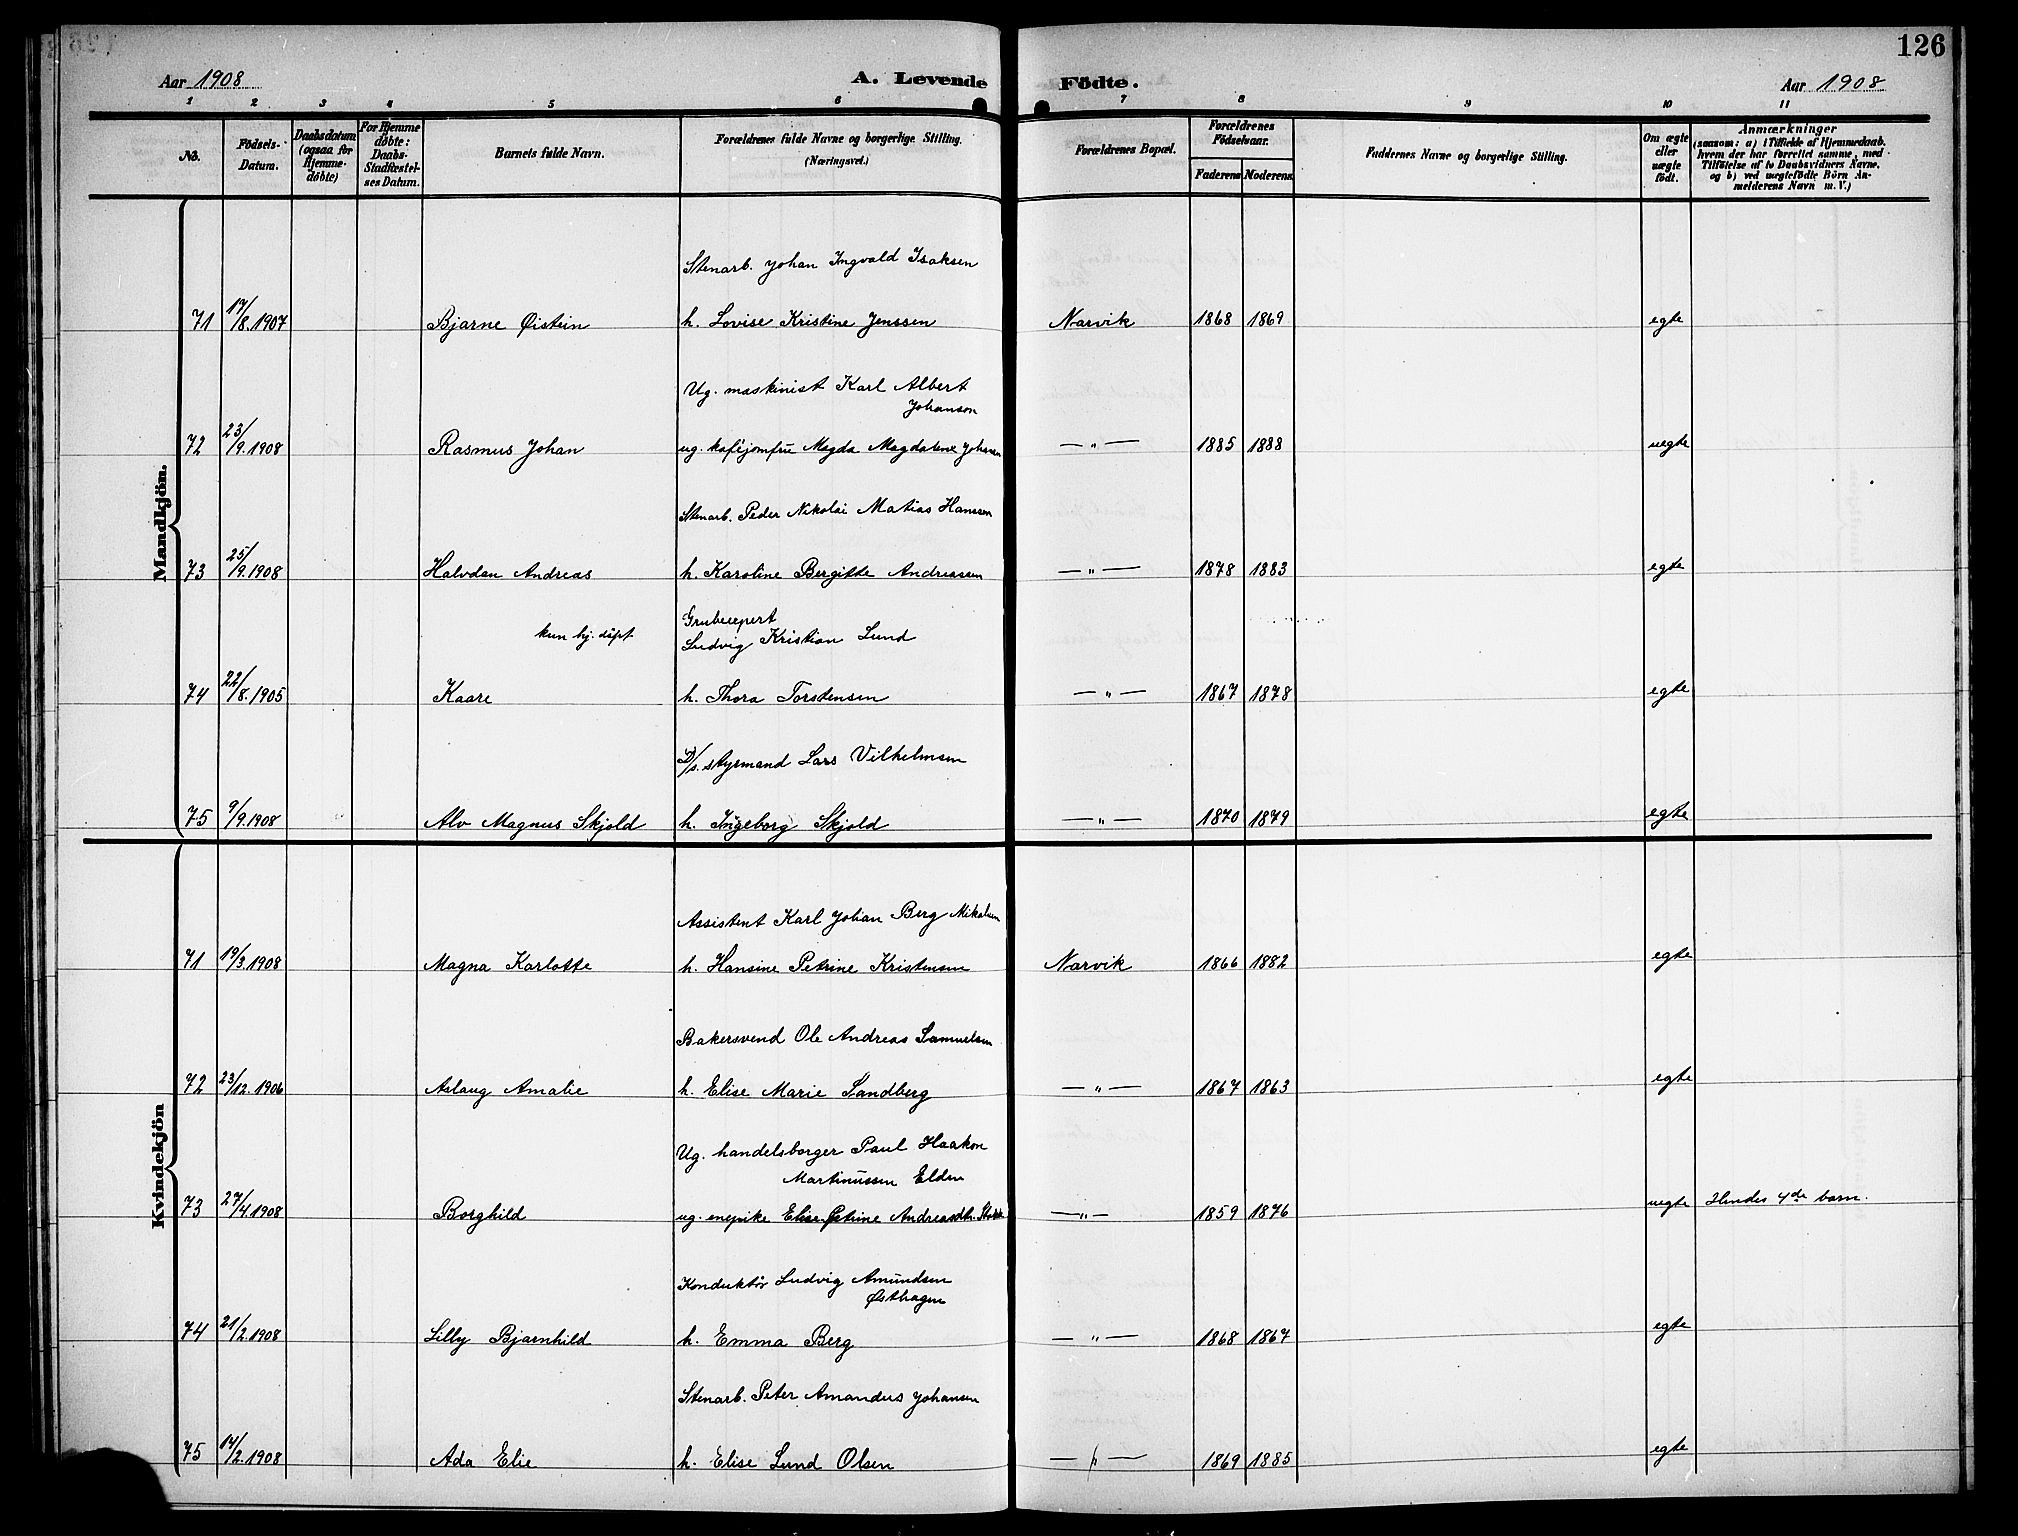 126
Aar 1908
A. Levende Födte.
Aar 1908
1 2 3 4 5 6 7 8 9 10 11
No.
Födsels-Datum.
Daabsdatum (ogsaa for Hjemme-döbte)
For Hjemme döbte: Daabs-Stadfæstel-ses Datum.
Barnets fulde Navn.
Forældrenes fulde Navne og borgerlige Stilling. (Næringsvei.)
Forældrenes Bopæl.
Forældrenes Födselsaar.
Faderens Moderens
Faddernes Navne og borgerlige Stilling.
Om ægte eller uægte födt.
Anmærkninger
(saasom: a) i Tilfælde af Hjemmedaab, hvem der har forrettet samme, med Tilföielse af to Daabsvidners Navne, og b) ved uægtefödte Börn An-melderens Navn m. V.)
Mandkjön.
Stenarb. Johan Ingvald Isaksen
71 17/8.1907 Bjarne Øistein h. Lovise Kristine Jenssen Narvik 1868 1869 egte
Ug. maskinist Karl Albert
Johanson
72 23/9.1908 Rasmus Johan ug. kaféjomfru Magda Magdalene Johansen — „ — 1885 1888 uegte
Stenarb. Peder Nikolai Matias Hanssen
73 25/9.1908 Halvdan Andreas h. Karoline Bergitte Andreassen — „ — 1878 1883 egte
kun hj. døpt
Ludvig Kristian Lund
74 22/8.1905 Kaare h. Thora Torstensen — „ — 1867 1878 egte
D/s. styrmand Lars Vilhelmsen
75 9/9.1908 Alv Magnus Skjold h. Ingeborg Skjold — „ — 1870 1879 egte
Kvindekjön
Assistent Karl Johan Berg Mikalsen
71 19/3.1908 Magna Karlotte h. Hansine Petrine Kristensen Narvik 1866 1882 egte
Bakersvend Ole Andreas Samuelsen
72 23/12.1906 Aslaug Amalie h. Elise Marie Sandberg — „ — 1867 1863 egte
Ug. handelsborger Paul Haakon
Martinussen Elden
73 27/4.1908 Borghild ug. enepike Elise Petrine Andreasdtr. — „ — 1859 1876 uegte Hendes 4de barn.
Konduktør Ludvig Amundsen
Østhagen
74 21/2.1908 Lilly Bjarnhild h. Emma Berg — „ — 1868 1867 egte
Stenarb. Peter Amandus Johansen
75 14/2.1908 Ada Elie h. Elise Lund Olsen — „ — 1869 1885 egte